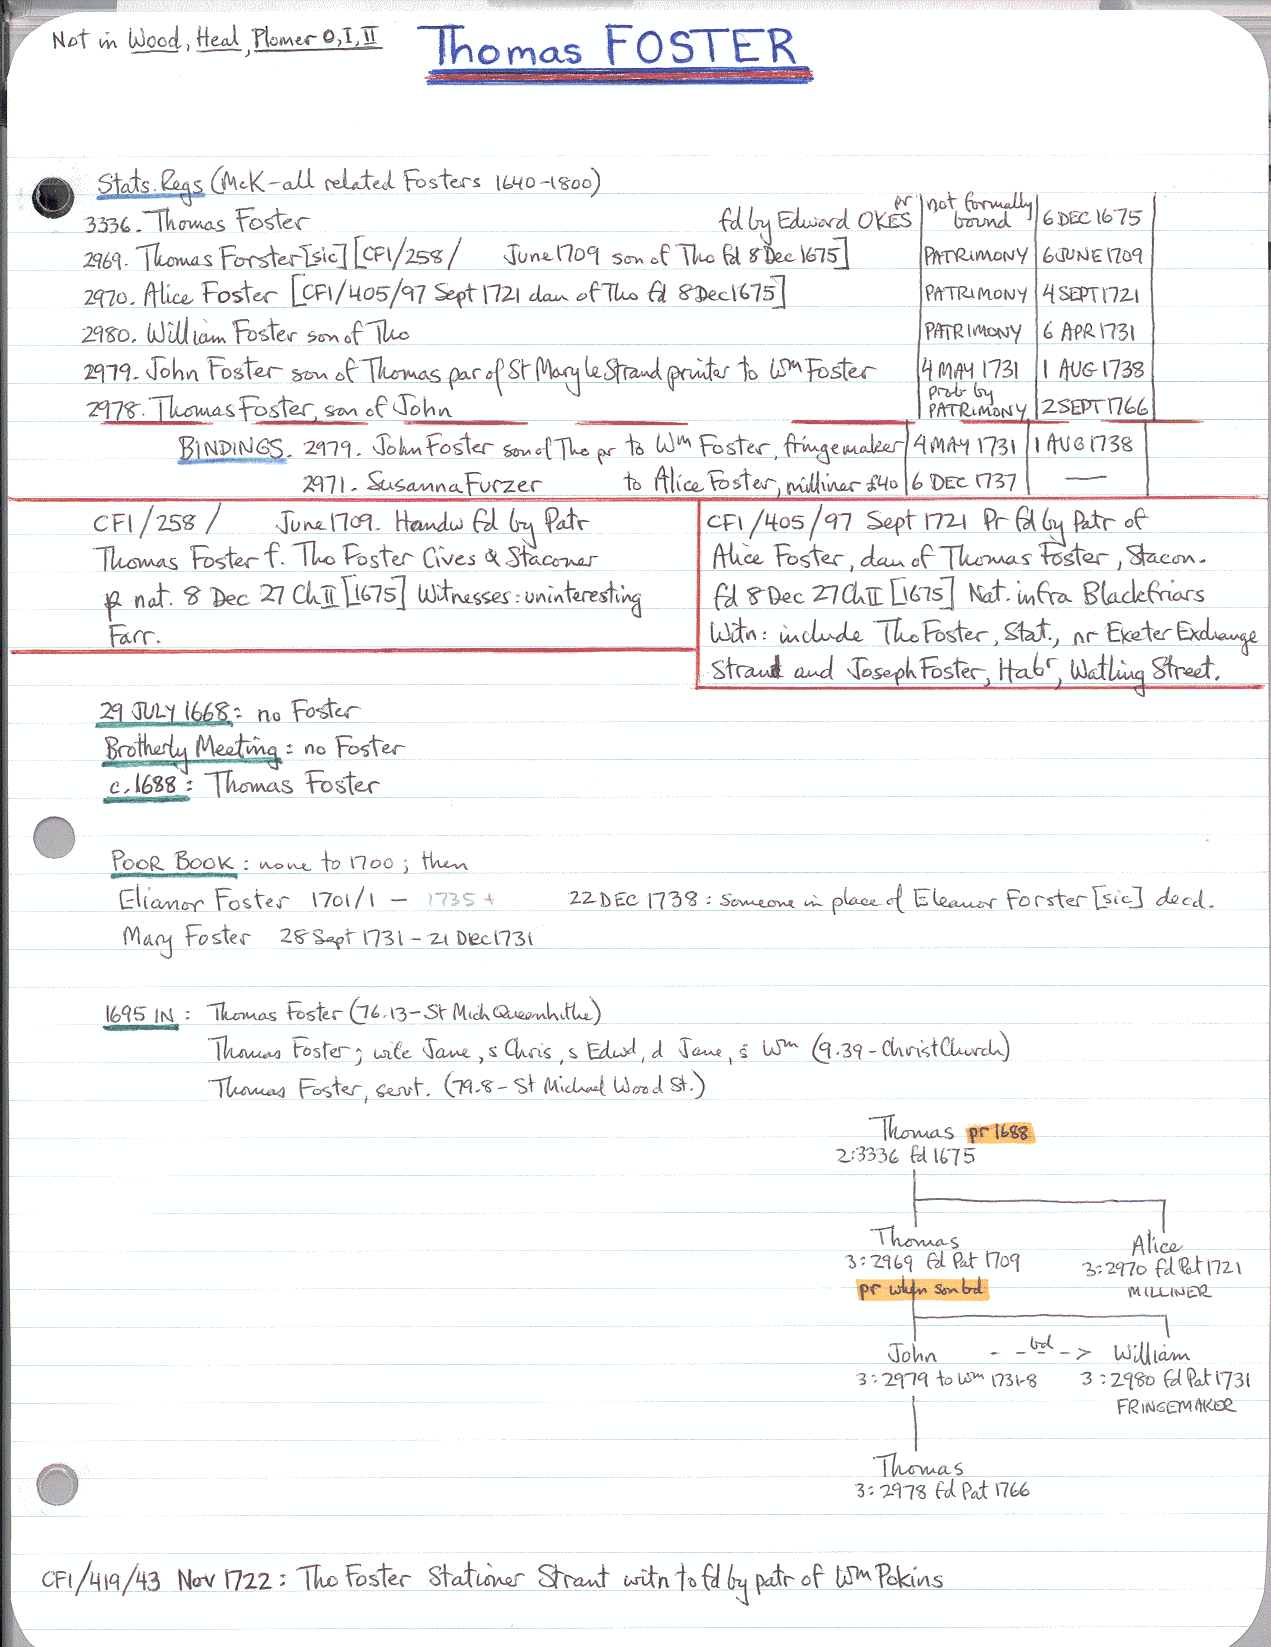 Not in Wood, Heal, Plomer O, I, II
Thomas FOSTER
Stats. Regs (McK-all related Fosters 1640-1800)
3336. Thomas Foster fd by Edward OKES pr not formally bound 6 DEC 1675
2969. Thomas Forster [sic] [CF1/258/ June 1709 son of Tho fd 8 Dec 1675] PATRIMONY 6 JUNE 1709
2970. Alice Foster [CF1/405/97 Sept 1721 dau of Tho fd 8 Dec 1675] PATRIMONY 4 SEPT 1721
2980. William Foster son of Tho PATRIMONY 6 APR 1731
2979. John Foster son of Thomas par of St Mary le Strand printer to Wm Foster 4 MAY 1731 1 AUG 1738
2978. Thomas Foster, son of John prob by PATRIMONY 2 SEPT 1766
BINDINGS. 2979. John Foster son of Tho pr to Wm Foster, fringemaker 4 MAY 1731 1 AUG 1738
2971. Susanna Furzer to Alice Foster, milliner £40 6 DEC 1737 —
CF1/258/ June 1709. Handw fd by Patr
Thomas Foster f. Tho Foster Cives & Staconer
p nat. 8 Dec 27 Ch II [1675] Witnesses: uninteresting
Farr.
CF1/405/97 Sept 1721 Pr fd by Patr of
Alice Foster, dau of Thomas Foster, Stacon.
fd 8 Dec 27 Ch II [1675] Nat. infra Blackfriars
Witn: include Tho Foster, Stat., nr Exeter Exchange
Strand and Joseph Foster, Habr, Watling Street.
29 JULY 1668: no Foster
Brotherly Meeting: no Foster
c. 1688: Thomas Foster
POOR BOOK: none to 1700; then
Elianor Foster 1701/1 - 1735 + 22 DEC 1738: Someone in place of Eleanor Forster [sic] decd.
Mary Foster 28 Sept 1731 - 21 Dec 1731
1695 IN: Thomas Foster (76.13 - St Mich Queenhithe)
Thomas Foster; wife Jane, s Chris, s Edwd, d Jane, s Wm (9.39 - Christ Church)
Thomas Foster, servt. (79.8 - St Michael Wood St.)
Thomas pr 1688
2:3336 fd 1675
Thomas Alice
3:2969 fd Pat 1709 3:2970 fd Pat 1721
pr when son bd MILLINER
John - - bd - > William
3:2979 to Wm 1731-8 3:2980 fd Pat 1731
FRINGEMAKER
Thomas
3:2978 fd Pat 1766
CF1/419/43 Nov 1722: Tho Foster Stationer Strant witn to fd by patr of Wm Pokins